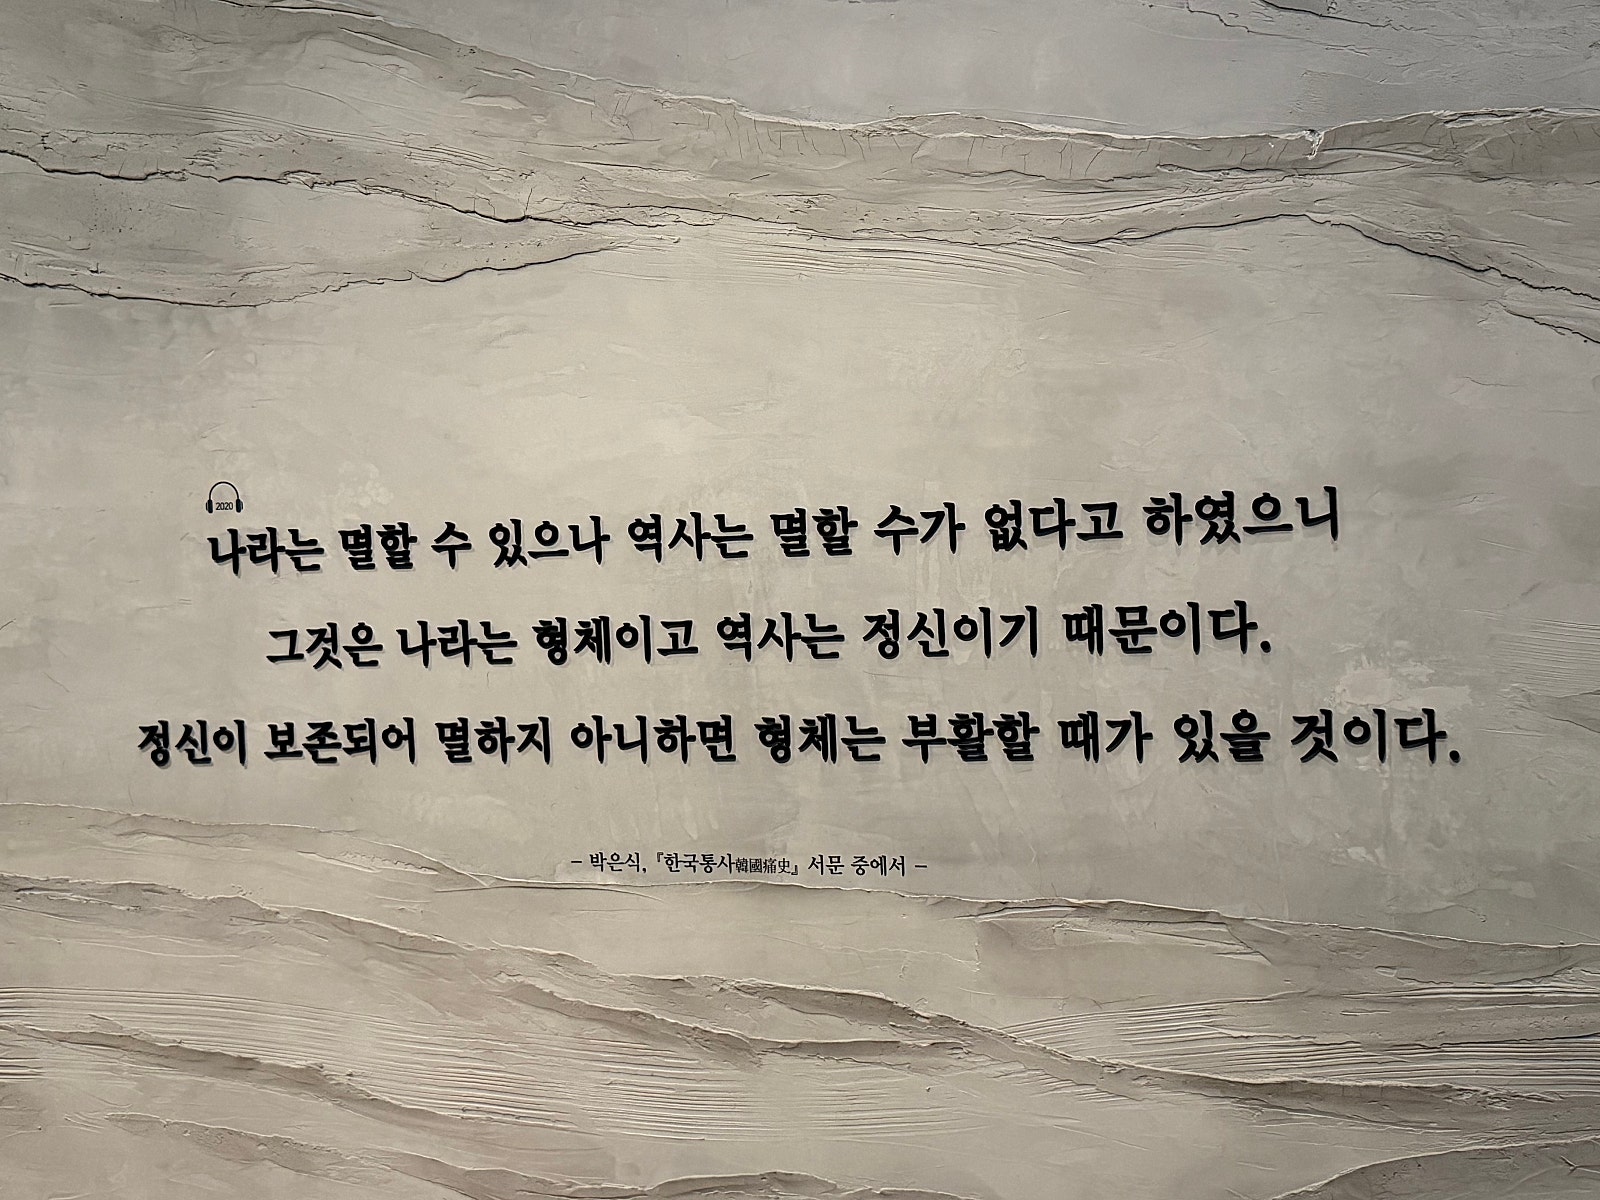 2020
나라는 멸할 수 있으나 역사는 멸할 수가 없다고 하였으니
그것은 나라는 형체이고 역사는 정신이기 때문이다.
정신이 보존되어 멸하지 아니하면 형체는 부활할 때가 있을 것이다.
– 박은식, 『한국통사韓國痛史』 서문 중에서 –